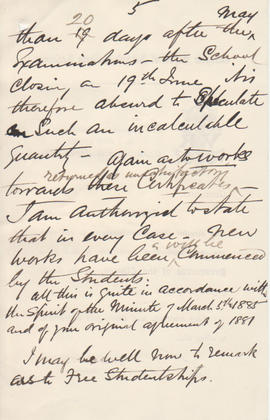 5 May
20
than 19 days after the
Examinations - the School
closing on 19th June it is
therefore absurd to speculate
on such an incalculable
quantity - again as to works
returned as unsatisfactory
towards these Certificates -
I am authorized to state
that in every case - new
works have been & will be commenced
by the Students.
all this is quite in accordance with
the Spirit of the Minute of March 5th 1885
and of your original agreement of 1881
I may be well now to remark
as to Free Studentships.